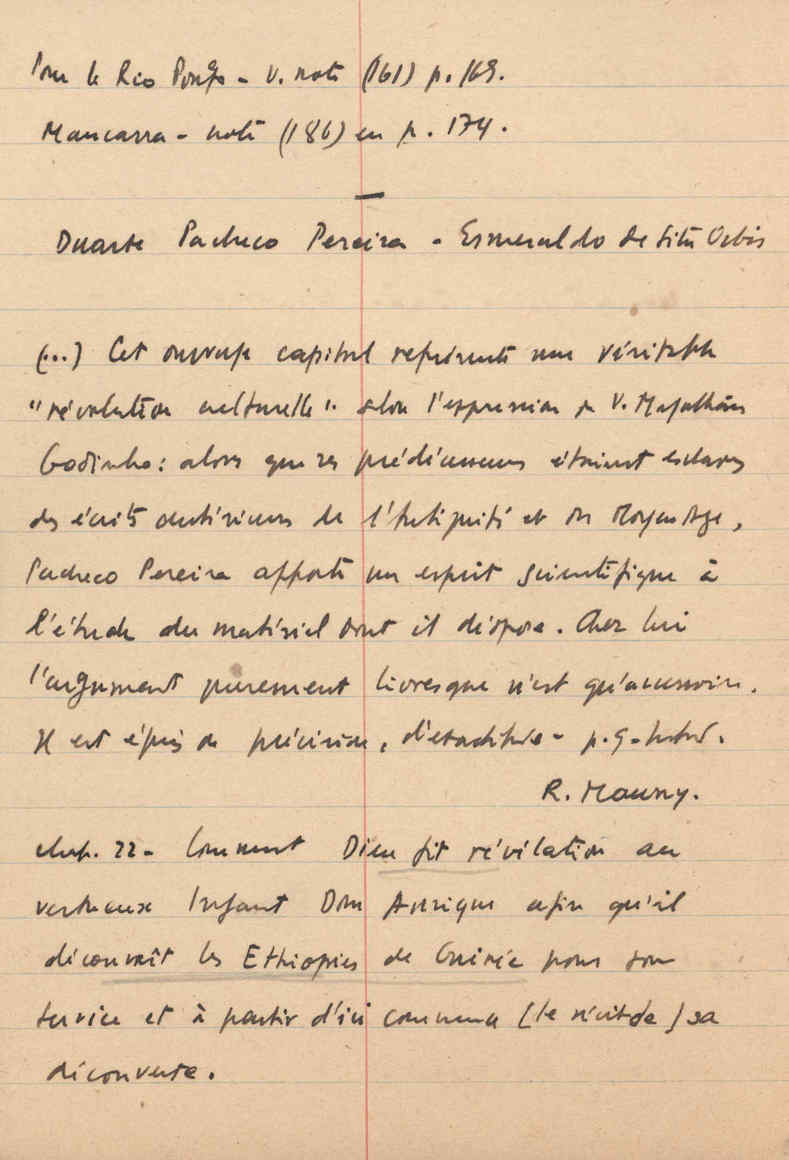 Pour le Rio Pongo - v. note (161) p. 169.
Mancarra - note (186) en p. 174.
Duarte Pacheco Pereira - Esmeraldo de Situ Orbis
(...) Cet ouvrage capital représente une véritable
"révolution culturelle" selon l'expression de V. Magalhães
Godinho: alors que ses prédécesseurs étaient esclaves
des écrits antérieurs de l'Antiquité et du Moyen Age,
Pacheco Pereira apporte un esprit scientifique à
l'étude du matériel dont il dispose. Chez lui
l'argument purement livresque n'est qu'accessoire.
Il est épris de précision, d'exactitude - p. 9 - Introd.
R. Mauny.
chap. 22 - Comment Dieu fit révélation au
vertueux Infant Dom Anrique afin qu'il
découvrît les Ethiopies de Guinée pour son
service et à partir d'ici commence [le récit de] sa
découverte.